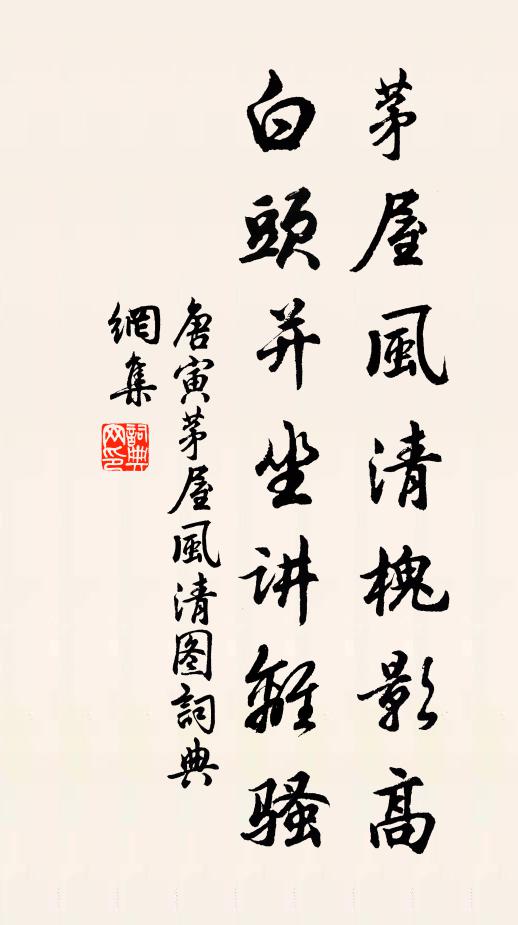 茅屋風清槐影高
白頭并坐讲離騷
唐寅茅屋風清图詞典
網集
詞典
网印